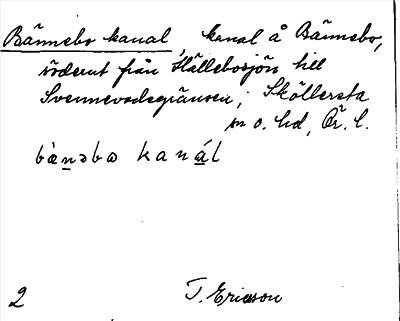 Bännebo kanal, kanal å Bännebo,
söderut från Hällebosjön till
Svennevadsgränsen; Sköllersta
sn o. hd, Ör. l.
bänəbo kanál
2 T. Ericsson